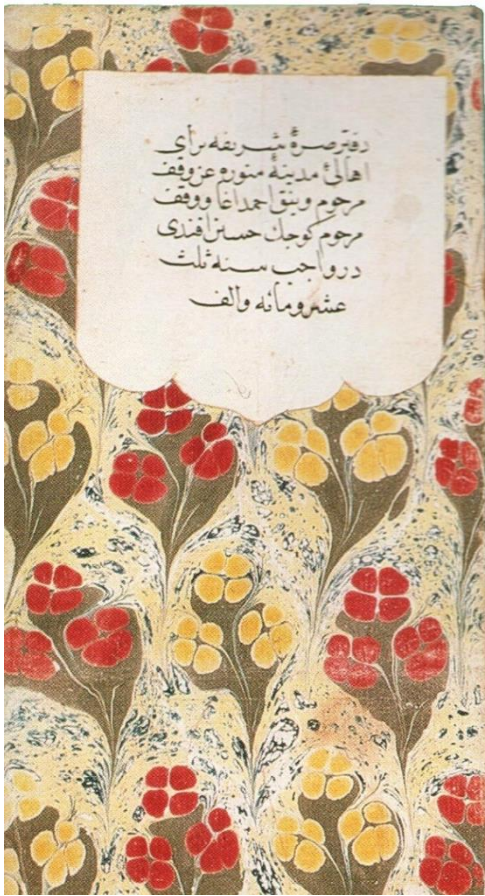 دفتر صرهٔ شريفه براى
اهالئ مدينهٔ منوره عن وقف
مرحوم احمد اغا ووقف
مرحوم كوجك حسين افندى
در واجب سنه ثلث
عشر ومائه والف